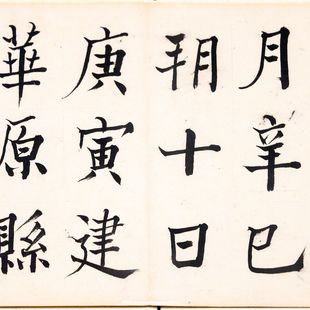 月辛巳
朔十日
庚寅建
華原縣